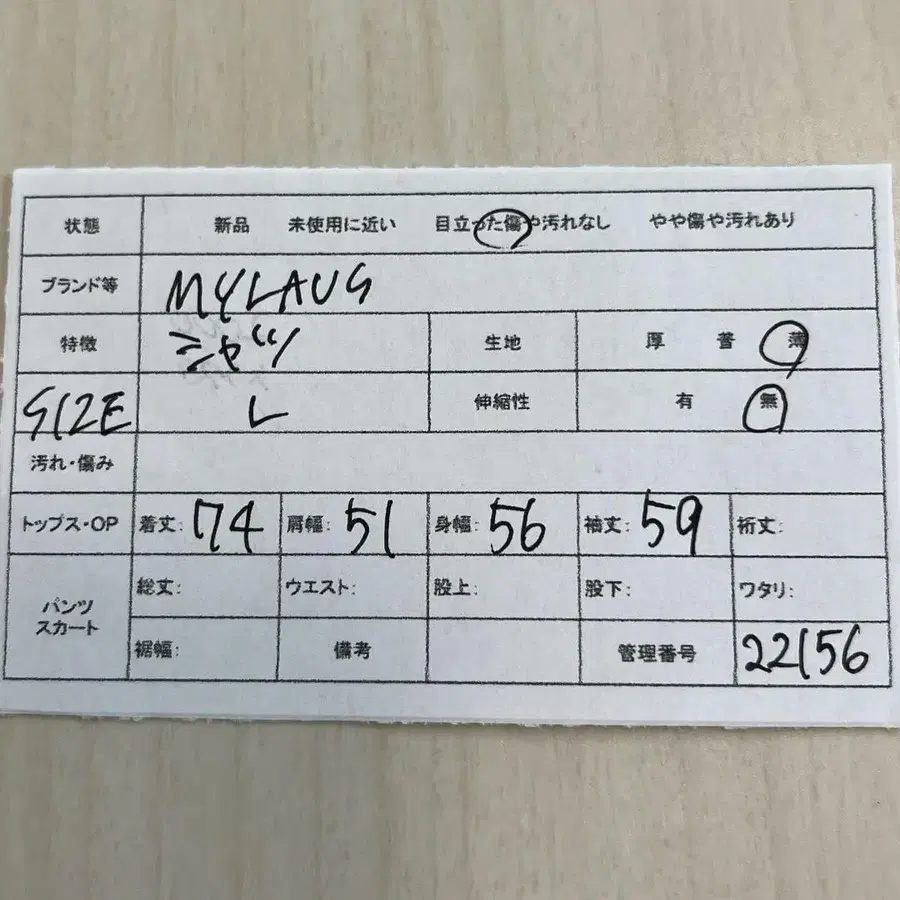 状態 新品 未使用に近い 目立った傷や汚れなし やや傷や汚れあり
ブランド等 MYLAUG
特徴 シャツ 生地 厚 普 薄
SIZE L 伸縮性 有 無
汚れ・傷み
トップス・OP 着丈: 74 肩幅: 51 身幅: 56 袖丈: 59 裄丈:
パンツ スカート 総丈: ウエスト: 股上: 股下: ワタリ:
裾幅: 備考 管理番号 22156